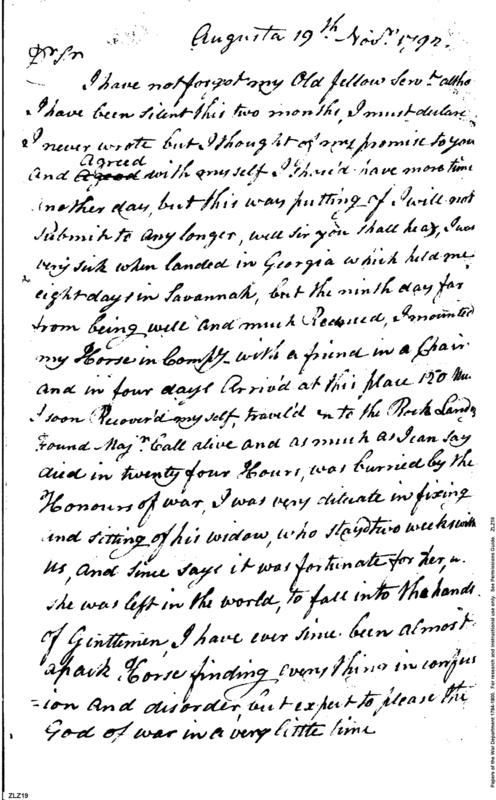 Augusta 19th Novr. 1792.
Dr. Sr
I have not forgot my Old fellow Servt. altho
I have been silent this two months, I must declare
I never wrote but I thought of my promise to you
Agreed
and agreed with myself I shou'd have more time
another day, but this way putting of I will not
submit to any longer, well sir you shall hear, I was
very sick when landed in Georgia which held me
eight days in Savannah, but the ninth day far
from being well and much Reduced, I mounted
my Horse in Compy. with a friend in a Chair
and in four days Arriv'd at this place 120 Mi.
I soon Recover'd myself, travel'd on to the Rock Landg
Found Majr. Call alive and as much as I can say
died in twenty four Hours, was burried by the
Honours of war, I was very dilicate in fixing
and sitting of his widow, who stayd two weeks with
us, and since says it was fortunate for her,
she was left in the world, to fall into the hands
of Gintlemen, I have ever since been almost
apack Horse finding every thing in confus
=ion and disorder but expect to please the
God of war in a very little time
ZLZ19
Papers of the War Department 1784-1800. For research and instructional use only. See Permissions Guide. ZLZ19